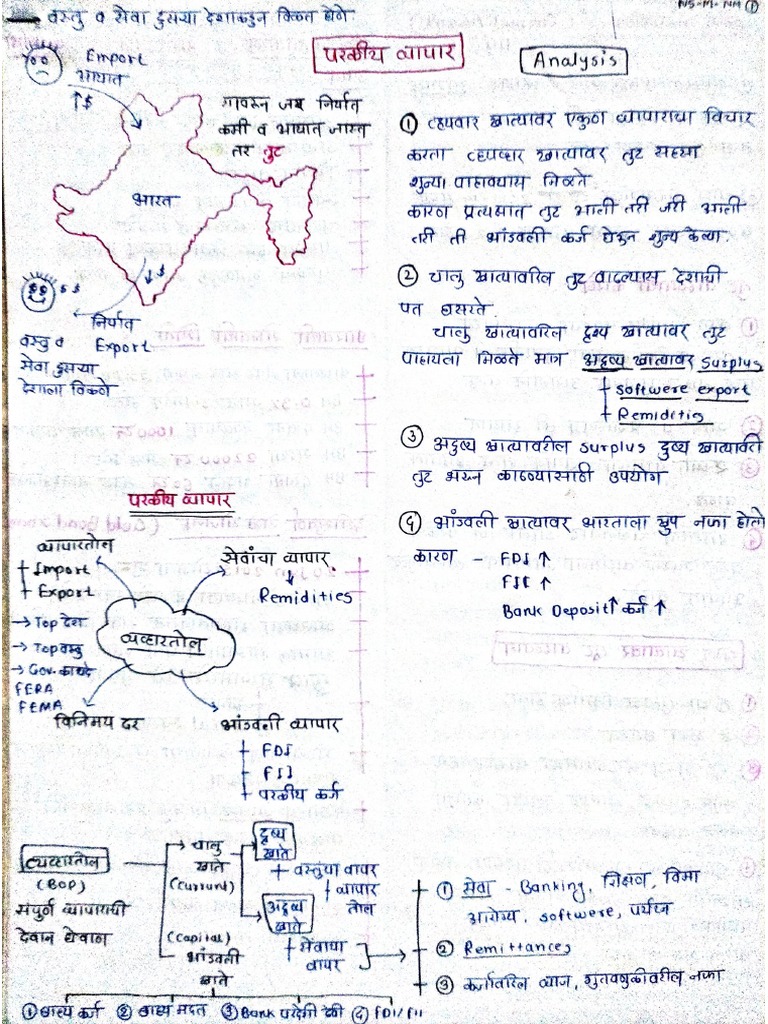 वस्तु व सेवा दुसऱ्या देशाकडून विकत घेणे
NS-M-NM ①
परकीय व्यापार
Import
आयात
↑$
भारत
यावरून जर निर्यात
कमी व आयात जास्त
तर तुट
$ $
निर्यात
Export
वस्तु व
सेवा दुसऱ्या
देशाला विकणे
Analysis
① व्यवहार खात्यावर एकुण व्यापाराचा विचार
करता व्यवहार खात्यावर तुट सहसा
शुन्य पाहावयास मिळते
कारण प्रत्यक्षात तुट आली तरी जरी आली
तरी ती भांडवली कर्ज घेऊन शुन्य केल्या.
② चालु खात्यावरिल तुट वाढल्यास देशाची
पत घसरते
चालु खात्यावरिल दृश्य खात्यावर तुट
पाहायला मिळते मात्र अदृश्य खात्यावर Surplus
Softwere export
Remiditis
③ अदृश्य खात्यावरील Surplus दृश्य खात्यावरी
तुट भरून काढण्यासाठी उपयोग.
④ भांडवली खात्यावर भारताला खुप नफा होतो
कारण - FDI ↑
FII ↑
Bank Deposit↑ कर्ज ↑
परकीय व्यापार
व्यापारतोल
Import
Export
→ Top देश
→ Top वस्तु
→ Gov. कायदे
FERA
FEMA
व्यव्हारतोल
सेवांचा व्यापार
Remidities
विनिमय दर
भांडवली व्यापार
FDI
FII
परकीय कर्ज
व्यव्हारतोल
(BOP)
संपुर्ण व्यापाराची
देवान घेवान
→ चालु
खाते
(Current)
(Capital)
भांडवली
खाते
दृश्य
खाते
वस्तुंचा वापर
व्यापार
तोल
अदृश्य
खाते
सेवांचा
वापर
① सेवा - Banking, शिक्षण, विमा
आरोग्य, softwere, पर्यटन
② Remittances
③ कर्जावरिल व्याज, गुंतवणुकीवरील नफा
① बाह्य कर्ज ② बाह्य मदत ③ Bank परदेशी ठेवी ④ FDI/FII